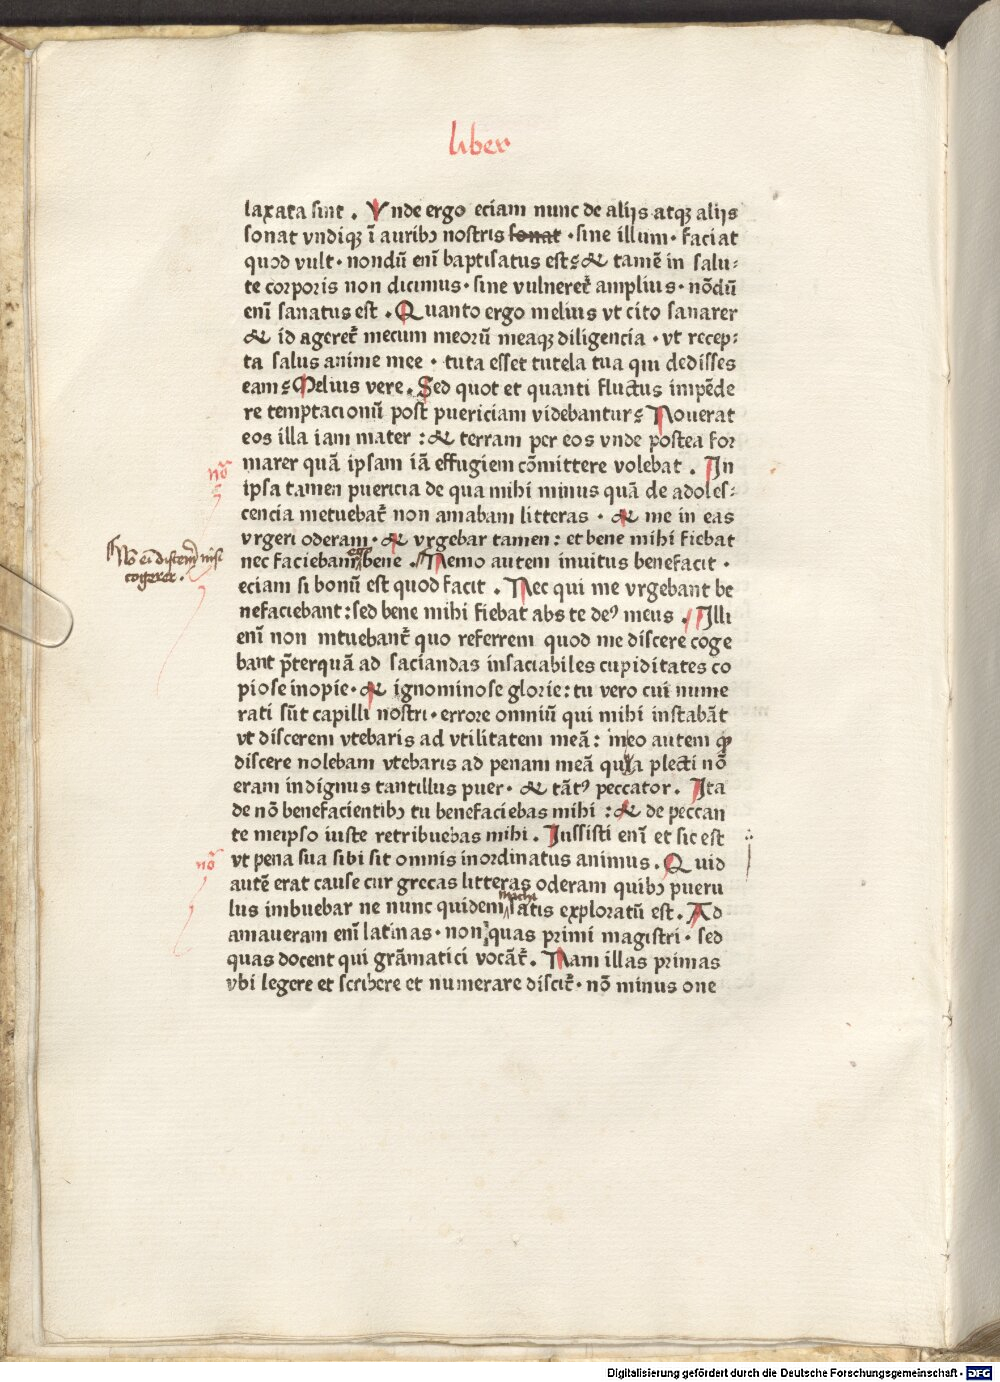 liber
laxata sint . Vnde ergo eciam nunc de alijs atqꝫ alijs
sonat vndiqꝫ ī auribꝫ nostris sonat · sine illum · faciat
quod vult · nondū enī baptisatus est : & tamē in salu-
te corporis non dicimus · sine vulneret̄ amplius · nōdū
enī sanatus est . Quanto ergo melius vt cito sanarer
& id ageret̄ mecum meorū meaqꝫ diligencia · vt recep-
ta salus anime mee · tuta esset tutela tua qui dedisses
eam : Melius vere . Sed quot et quanti fluctus impēde
re temptacionū post puericiam videbantur : Nouerat
eos illa iam mater : & terram per eos vnde postea for
marer quā ipsam iā effugiem cōmittere volebat . In
nō
ipsa tamen puericia de qua mihi minus quā de adoles-
cencia metuebat̄ non amabam litteras · & me in eas
vrgeri oderam · & vrgebar tamen : et bene mihi fiebat
Nō em̄ discerem nisi
cogerer .
nec faciebam ego bene . Nemo autem inuitus benefacit ·
eciam si bonū est quod facit . Nec qui me vrgebant be
nefaciebant : sed bene mihi fiebat abs te deꝰ meus . Illi
enī non intuebant̄ quo referrem quod me discere coge
bant p̄terquā ad saciandas insaciabiles cupiditates co
piose inopie · & ignominose glorie : tu vero cui nume
rati sūt capilli nostri · errore omniū qui mihi instabāt
vt discerem vtebaris ad vtilitatem meā : meo autem ꝙ
discere nolebam vtebaris ad penam meā quia plecti nō
eram indignus tantillus puer · & tātꝰ peccator . Ita
de nō benefacientibꝫ tu benefaciebas mihi : & de peccan
te meipso iuste retribuebas mihi . Iussisti enī et sic est
vt pena sua sibi sit omnis inordinatus animus . Quid
nō
autē erat cause cur grecas litteras oderam quibꝫ pueru
lus imbuebar ne nunc quidem michi satis exploratū est . Ad
amaueram enī latinas · non quas primi magistri · sed
quas docent qui grāmatici vocāt̄ . Nam illas primas
vbi legere et scribere et numerare discit̄ · nō minus one
Digitalisierung gefördert durch die Deutsche Forschungsgemeinschaft - DFG